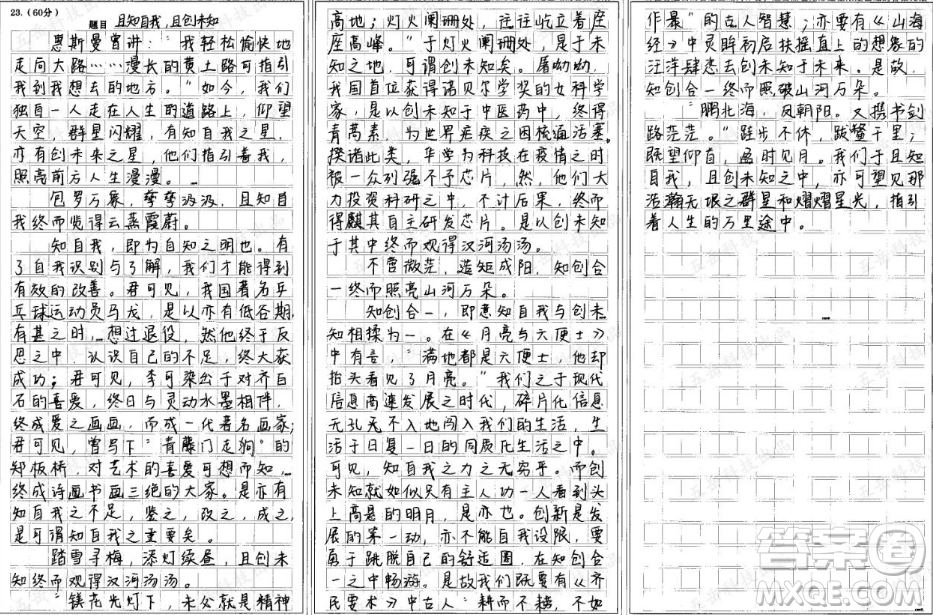 23.(60分)
题目 且知自我,且创未知
惠斯曼曾讲:“我轻松愉快地
走向大路……漫长的黄土路可指引
我到我想去的地方。”如今,我们
独自一人走在人生的道路上,仰望
天空,群星闪耀,有知自我之星,
亦有创未来之星,他们指引着我,
照高前方人生漫漫。
包罗万象,孽孽汲汲,且知自
我终而览得云蒸霞蔚。
知自我,即为自知之明也。有
了自我识别与了解,我们才能得到
有效的改善。君可见,我国著名乒
乓球运动员马龙,是以亦有低谷期,
有甚之时,想过退役,然他终于反
思之中,认识自己的不足,终大获
成功;君可见,李可染公于对齐白
石的喜爱,终日与灵动水墨相伴,
终成爱之画画,而成一代著名画家;
君可见,曾写下“青藤门走狗”的
郑板桥,对艺术的喜爱可想而知,
终成诗画书画三绝的大家。是亦有
知自我之不足,鉴之,改之,成之,
是可谓知自我之重要矣。
踏雪寻梅,添灯续昼,且创未
知终而观得汉河汤汤。
“镁花光灯下,未公就是精神
高地;灯火阑珊处,往往屹立着座
座高峰。”于灯火阑珊处,是于未
知之地,可谓创未知矣。屠呦呦,
我国首位获得诺贝尔学奖的女科学
家,是以创未知于中医药中,终得
青蒿素,为世界疾疫之困梳通活塞。
揆诸此类,华学为科技在疫情之时
被一众列强不予芯片,然,他们大
力投资科研之中,不计后果,终而
得麒其自主研发芯片。是以创未知
于其中终而观得汉河汤汤。
不啻微茫,造矩成阳,知创合
一终而照亮山河万朵。
知创合一,即意知自我与创未
知相揉为一。在《月亮与六便士》
中有言,“满地都是六便士,他却
抬头看见了月亮。”我们之于现代
信息高速发展之时代,碎片化信息
无孔无不入地闯入我们的生活,生
活于日复一日的同质化生活之中。
可见,知自我之力之无穷乎。而创
未知就如似只有主人功一人看到头
上高悬的明月,是亦也。创新是发
展的第一动,亦不能自我设限,要
勇于跳脱自己的舒适圈,在知创合
一之中畅游。是故我们既要有《齐
民要术》中古人“耕而不耨,不如
作暴”的古人智慧;亦要有《山海
经》中灵眸初启扶摇直上的想象的
汪洋肆恣去创未知于未来。是故,
知创合一终而照破山河万朵。
“鹏北海,凤朝阳。又携书剑
路茫茫。”跬步不休,跛鳖千里;
眺望仰首,盈时见月。我们于且知
自我,且创未知之中,亦可望见那
浩瀚无垠之群星和熠熠星光,指引
着人生的万里途中。
答案圈
MXQE.COM